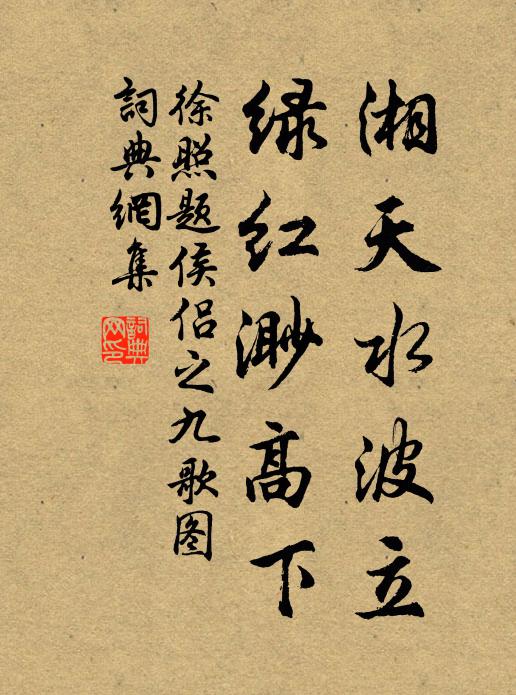 湘天水波立
绿红渺高下
徐照题侯侣之九歌图
詞典網集
詞典
网印